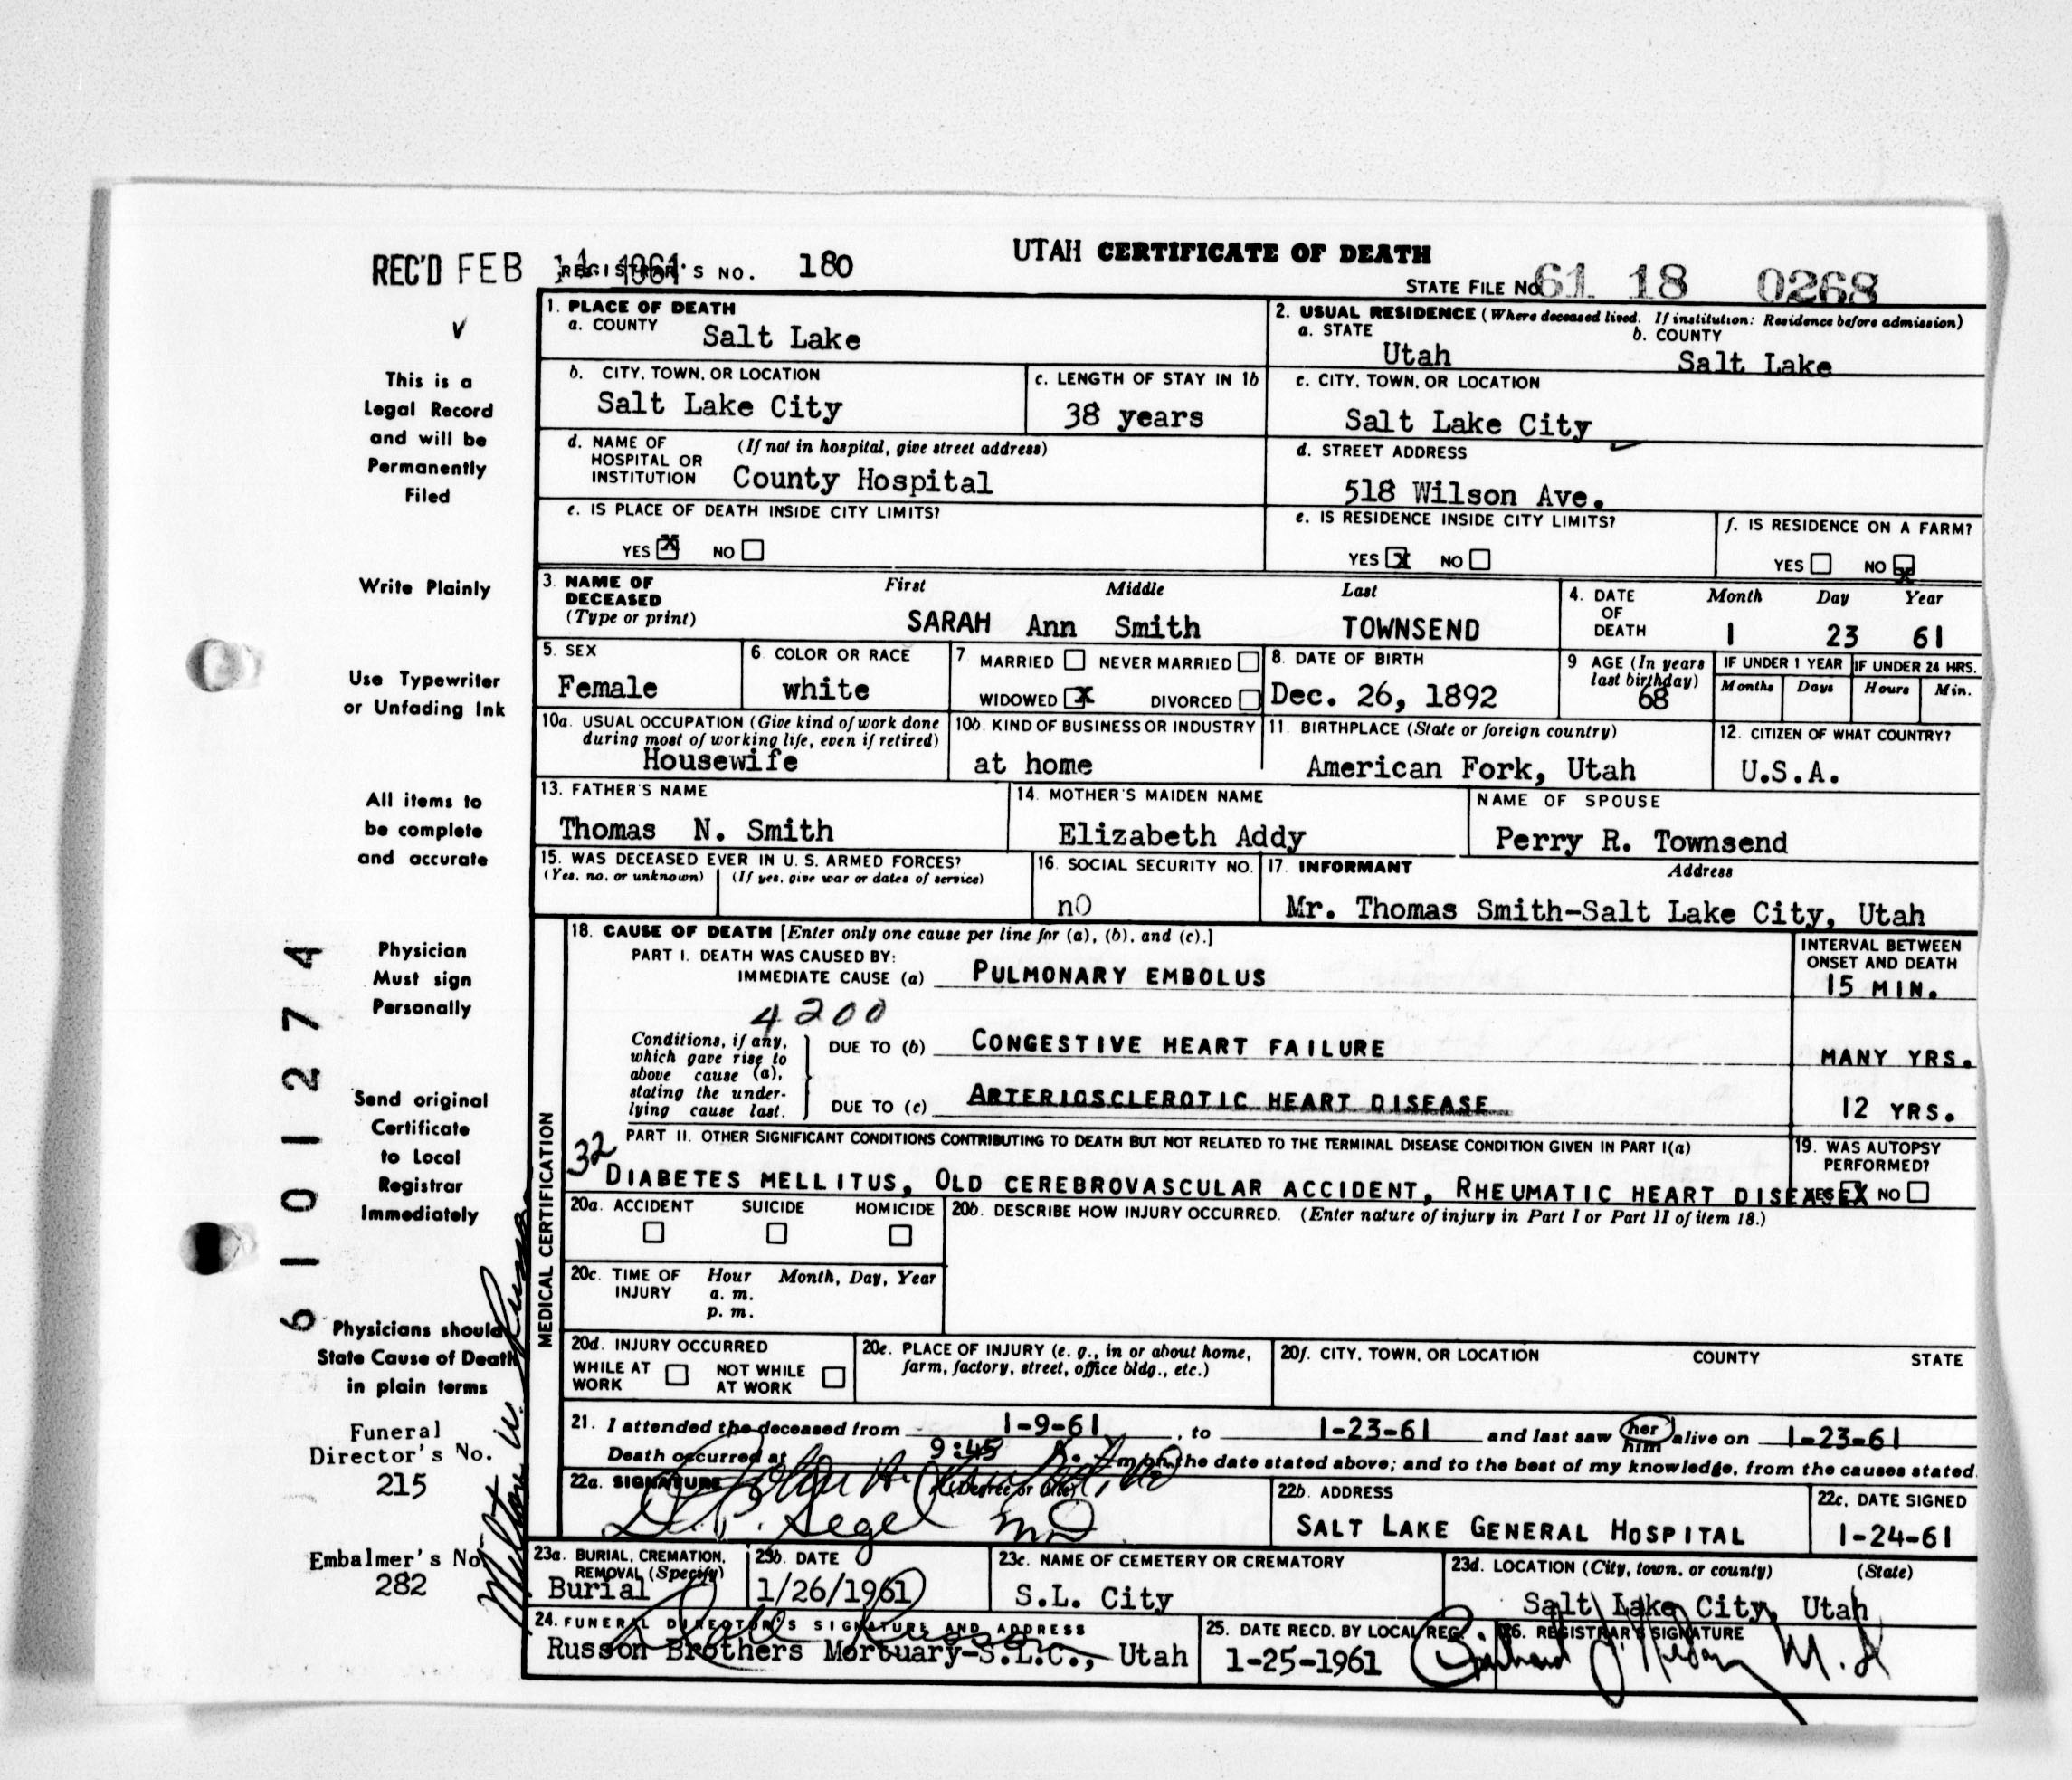 UTAH CERTIFICATE OF DEATH
REC'D FEB 14 1961 REGISTRAR'S NO. 180
STATE FILE NO. 61 18 0268
1. PLACE OF DEATH
a. COUNTY Salt Lake
2. USUAL RESIDENCE (Where deceased lived. If institution: Residence before admission)
a. STATE Utah b. COUNTY Salt Lake
b. CITY, TOWN, OR LOCATION Salt Lake City
c. LENGTH OF STAY IN 1b 38 years
c. CITY, TOWN, OR LOCATION Salt Lake City
d. NAME OF HOSPITAL OR INSTITUTION (If not in hospital, give street address) County Hospital
d. STREET ADDRESS 518 Wilson Ave.
e. IS PLACE OF DEATH INSIDE CITY LIMITS?
YES X NO
e. IS RESIDENCE INSIDE CITY LIMITS?
YES X NO
f. IS RESIDENCE ON A FARM?
YES NO X
3. NAME OF DECEASED (Type or print) First Middle Last
SARAH Ann Smith TOWNSEND
4. DATE OF DEATH Month Day Year
1 23 61
5. SEX Female
6. COLOR OR RACE white
7 MARRIED NEVER MARRIED
WIDOWED X DIVORCED
8. DATE OF BIRTH Dec. 26, 1892
9 AGE (In years last birthday) 68
IF UNDER 1 YEAR Months Days
IF UNDER 24 HRS. Hours Min.
10a. USUAL OCCUPATION (Give kind of work done during most of working life, even if retired)
Housewife
10b. KIND OF BUSINESS OR INDUSTRY
at home
11. BIRTHPLACE (State or foreign country)
American Fork, Utah
12. CITIZEN OF WHAT COUNTRY?
U.S.A.
13. FATHER'S NAME
Thomas N. Smith
14. MOTHER'S MAIDEN NAME
Elizabeth Addy
NAME OF SPOUSE
Perry R. Townsend
15. WAS DECEASED EVER IN U. S. ARMED FORCES?
(Yes, no. or unknown) (If yes, give war or dates of service)
16. SOCIAL SECURITY NO.
nO
17. INFORMANT Address
Mr. Thomas Smith-Salt Lake City, Utah
MEDICAL CERTIFICATION
18. CAUSE OF DEATH [Enter only one cause per line for (a), (b), and (c).]
PART I. DEATH WAS CAUSED BY:
IMMEDIATE CAUSE (a) PULMONARY EMBOLUS
INTERVAL BETWEEN ONSET AND DEATH
15 MIN.
4200
Conditions, if any, which gave rise to above cause (a), stating the underlying cause last.
DUE TO (b) CONGESTIVE HEART FAILURE MANY YRS.
DUE TO (c) ARTERIOSCLEROTIC HEART DISEASE 12 YRS.
PART II. OTHER SIGNIFICANT CONDITIONS CONTRIBUTING TO DEATH BUT NOT RELATED TO THE TERMINAL DISEASE CONDITION GIVEN IN PART I(a)
32
DIABETES MELLITUS, OLD CEREBROVASCULAR ACCIDENT, RHEUMATIC HEART DISEASE
19. WAS AUTOPSY PERFORMED?
YES X NO
20a. ACCIDENT SUICIDE HOMICIDE
20b. DESCRIBE HOW INJURY OCCURRED. (Enter nature of injury in Part I or Part II of item 18.)
20c. TIME OF INJURY Hour Month, Day, Year
a. m.
p. m.
20d. INJURY OCCURRED
WHILE AT WORK NOT WHILE AT WORK
20e. PLACE OF INJURY (e. g., in or about home, farm, factory, street, office bldg., etc.)
20f. CITY, TOWN, OR LOCATION COUNTY STATE
21. I attended the deceased from 1-9-61, to 1-23-61 and last saw her him alive on 1-23-61
Death occurred at 9:45 A. m on the date stated above; and to the best of my knowledge, from the causes stated.
22a. SIGNATURE (Degree or title)
D. P. Segel MD
22b. ADDRESS
SALT LAKE GENERAL HOSPITAL
22c. DATE SIGNED
1-24-61
23a. BURIAL, CREMATION, REMOVAL (Specify)
Burial
23b. DATE
1/26/1961
23c. NAME OF CEMETERY OR CREMATORY
S.L. City
23d. LOCATION (City, town, or county) (State)
Salt Lake City, Utah
24. FUNERAL DIRECTOR'S SIGNATURE AND ADDRESS
Russon Brothers Mortuary-S.L.C., Utah
25. DATE RECD. BY LOCAL REG.
1-25-1961
26. REGISTRAR'S SIGNATURE
v
This is a
Legal Record
and will be
Permanently
Filed
Write Plainly
Use Typewriter
or Unfading Ink
All items to
be complete
and accurate
Physician
Must sign
Personally
Send original
Certificate
to Local
Registrar
Immediately
Physicians should
State Cause of Death
in plain terms
Funeral
Director's No.
215
Embalmer's No
282
6101274